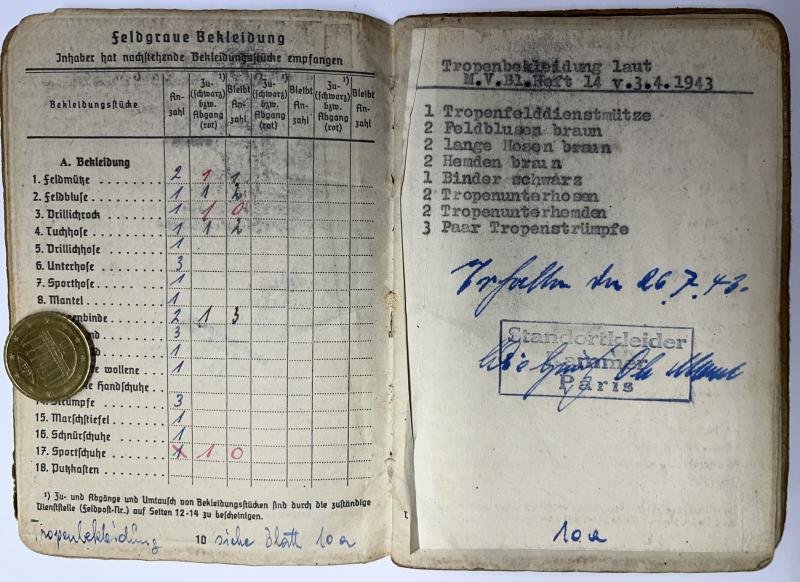 Feldgraue Bekleidung
Inhaber hat nachstehende Bekleidungsstücke empfangen
Bekleidungsstücke An-zahl Zu-(schwarz) bzw. Abgang (rot) ¹) Bleibt An-zahl Zu-(schwarz) bzw. Abgang (rot) ¹) Bleibt An-zahl Zu-(schwarz) bzw. Abgang (rot) ¹) Bleibt An-zahl
A. Bekleidung
1. Feldmütze 2 1 1
2. Feldbluse 1 1 2
3. Drillichrock 1 1 0
4. Tuchhose 1 1 2
5. Drillichhose 1
6. Unterhose 3
7. Sporthose 1
8. Mantel 1
enbinde 2 1 3
nd 3
d 1
e wollene 1
e Handschuhe
14. Strümpfe 3
15. Marschstiefel 1
16. Schnürschuhe 1
17. Sportschuhe 1 1 0
18. Putzkasten
¹) Zu- und Abgänge und Umtausch von Bekleidungsstücken sind durch die zuständige
Dienststelle (Feldpost-Nr.) auf Seiten 12-14 zu bescheinigen.
Tropenbekleidung 10 siehe Blatt 10a
Tropenbekleidung laut
M.V.Bl.Heft 14 v.3.4.1943
1 Tropenfelddienstmütze
2 Feldblusen braun
2 lange Hosen braun
2 Hemden braun
1 Binder schwarz
2 Tropenunterhosen
2 Tropenunterhemden
3 Paar Tropenstrümpfe
Erhalten den 26.7.43.
Standortkleider
kammer
Paris
1
10a